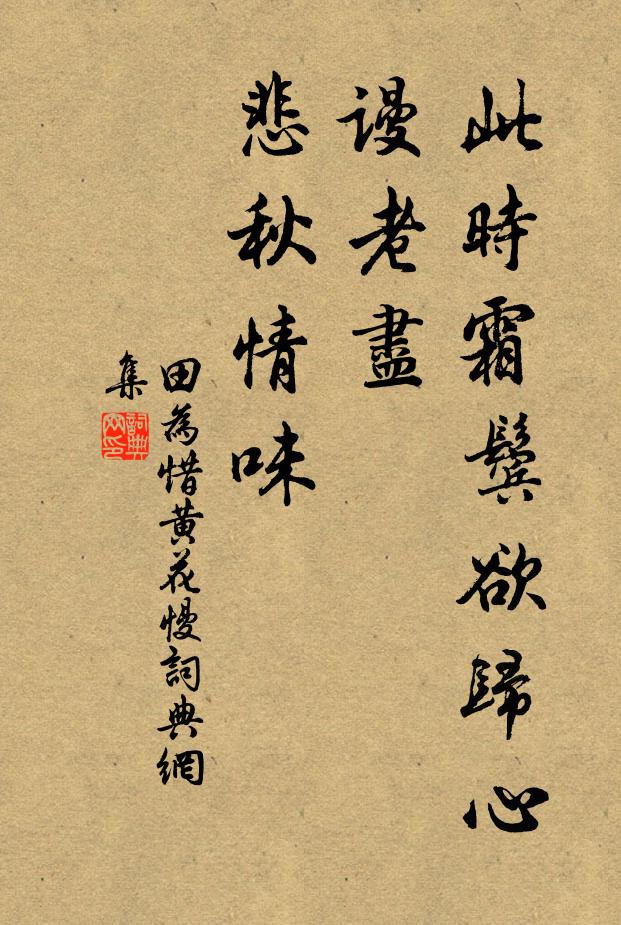 此時霜鬢欲歸心
謾老盡
悲秋情味
田為惜黃花慢詞典網
集
詞典網印